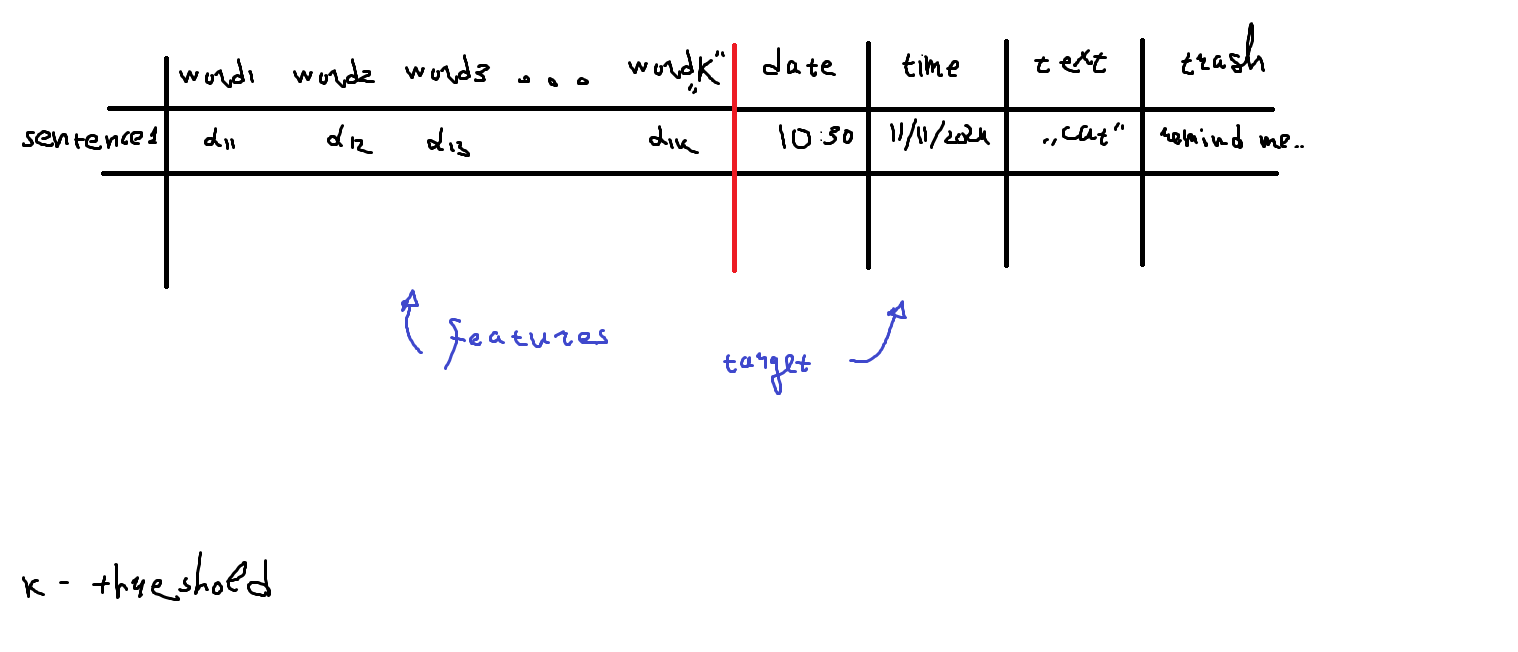 word1 word2 word3 .... word„K" date time text trash
sentence1 d11 d12 d13 d1k 10:30 11/11/2024 „cat" remind me..
features
target
k - threshold